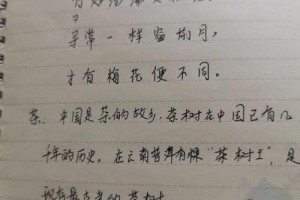 寻常一样窗前月,
才有梅花便不同。
茶,中国是茶的故乡,茶树在中国已有几
千年的历史。在云南普洱有棵“茶树王”,是
现存最古老的茶树